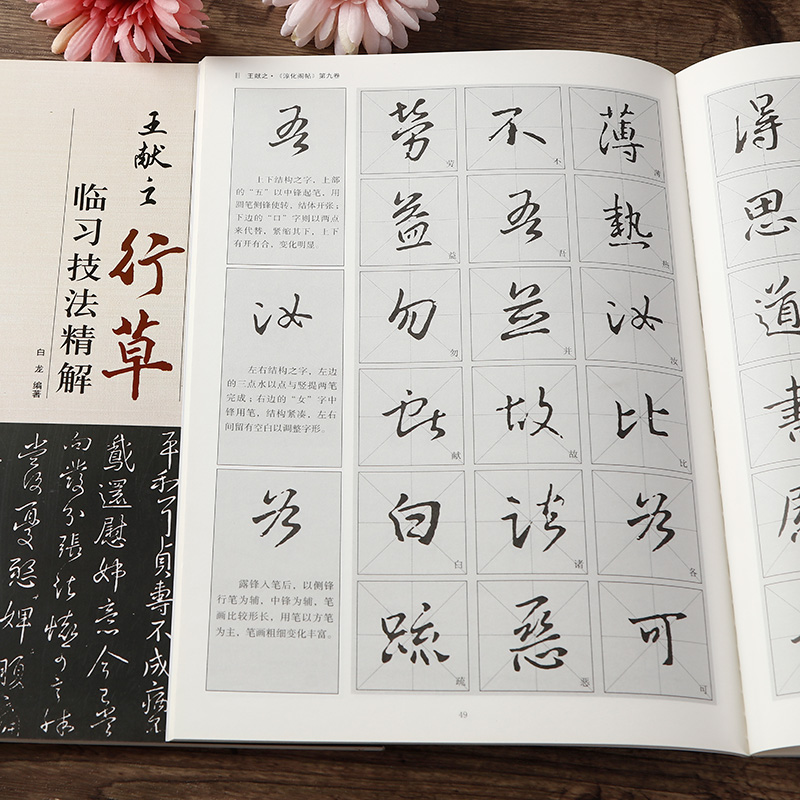 王献之
行草
临习技法精解
白龙 编著
王献之·《淳化阁帖》第九卷
吾
上下结构之字，上部
的“五”以中锋起笔，用
圆笔侧锋使转，结体开张；
下边的“口”字则以两点
来代替，紧缩其下，上下
有开有合，变化明显。
汝
左右结构之字，左边
的三点水以点与竖提两笔
完成；右边的“女”字中
锋用笔，结构紧凑，左右
间留有空白以调整字形。
各
露锋入笔后，以侧锋
行笔为辅，中锋为辅，笔
画比较形长，用笔以方笔
为主，笔画粗细变化丰富。
劳 不 薄
益 吾 热
勿 并 汝
献 故 比
白 诸 各
疏 恶 可
49
得
思
道
書
平和可貞專不成
戴還慰姊意